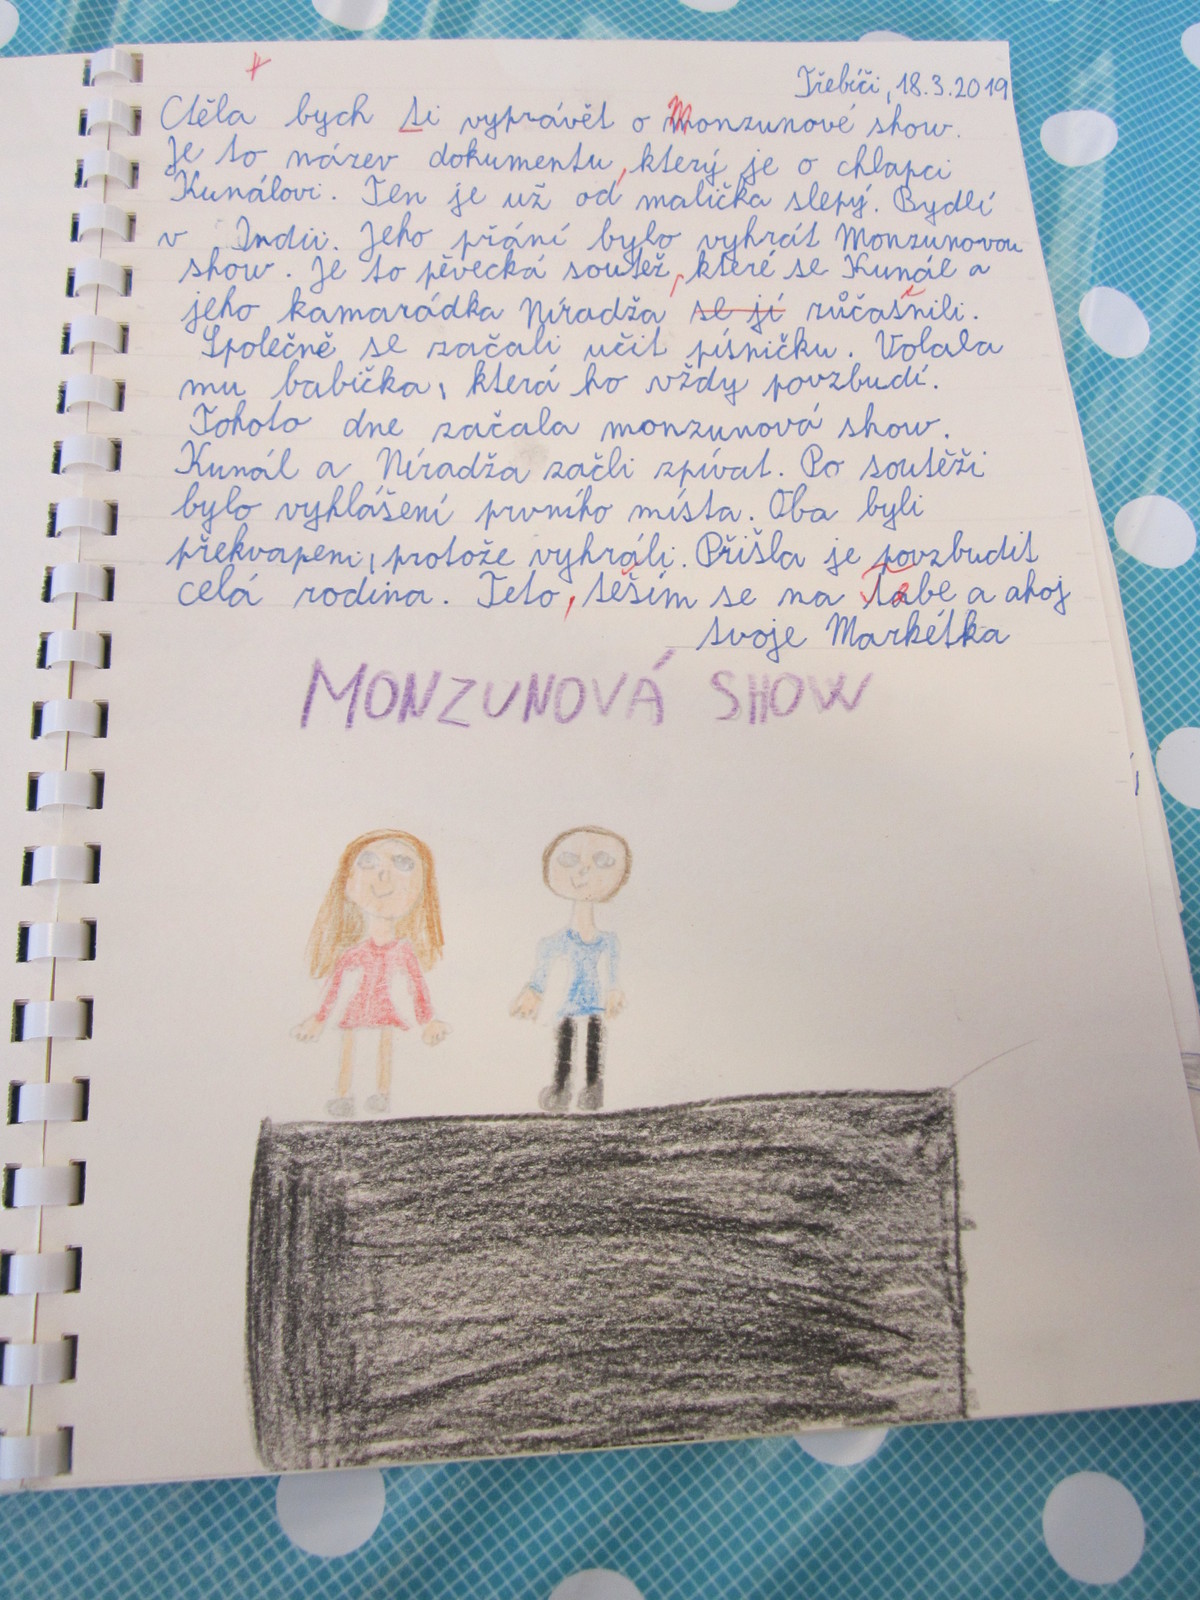 Třebíči, 18.3.2019
Ctěla bych ti vyprávět o Monzunové show.
Je to název dokumentu, který je o chlapci
Kunálovi. Ten je už od malička slepý. Bydlí
v Indii. Jeho přání bylo vyhrát Monzunovou
show. Je to pěvecká soutěž, které se Kunál a
jeho kamarádka Níradža se jí zůčašnili.
Společně se začali učit písničku. Volala
mu babička, která ho vždy povzbudí.
Tohoto dne začala monzunová show.
Kunál a Níradža začli zpívat. Po soutěži
bylo vyhlášení prvního místa. Oba byli
překvapeni, protože vyhráli. Přišla je povzbudit
celá rodina. Teto, těším se na tebe a ahoj
tvoje Markétka
MONZUNOVÁ SHOW